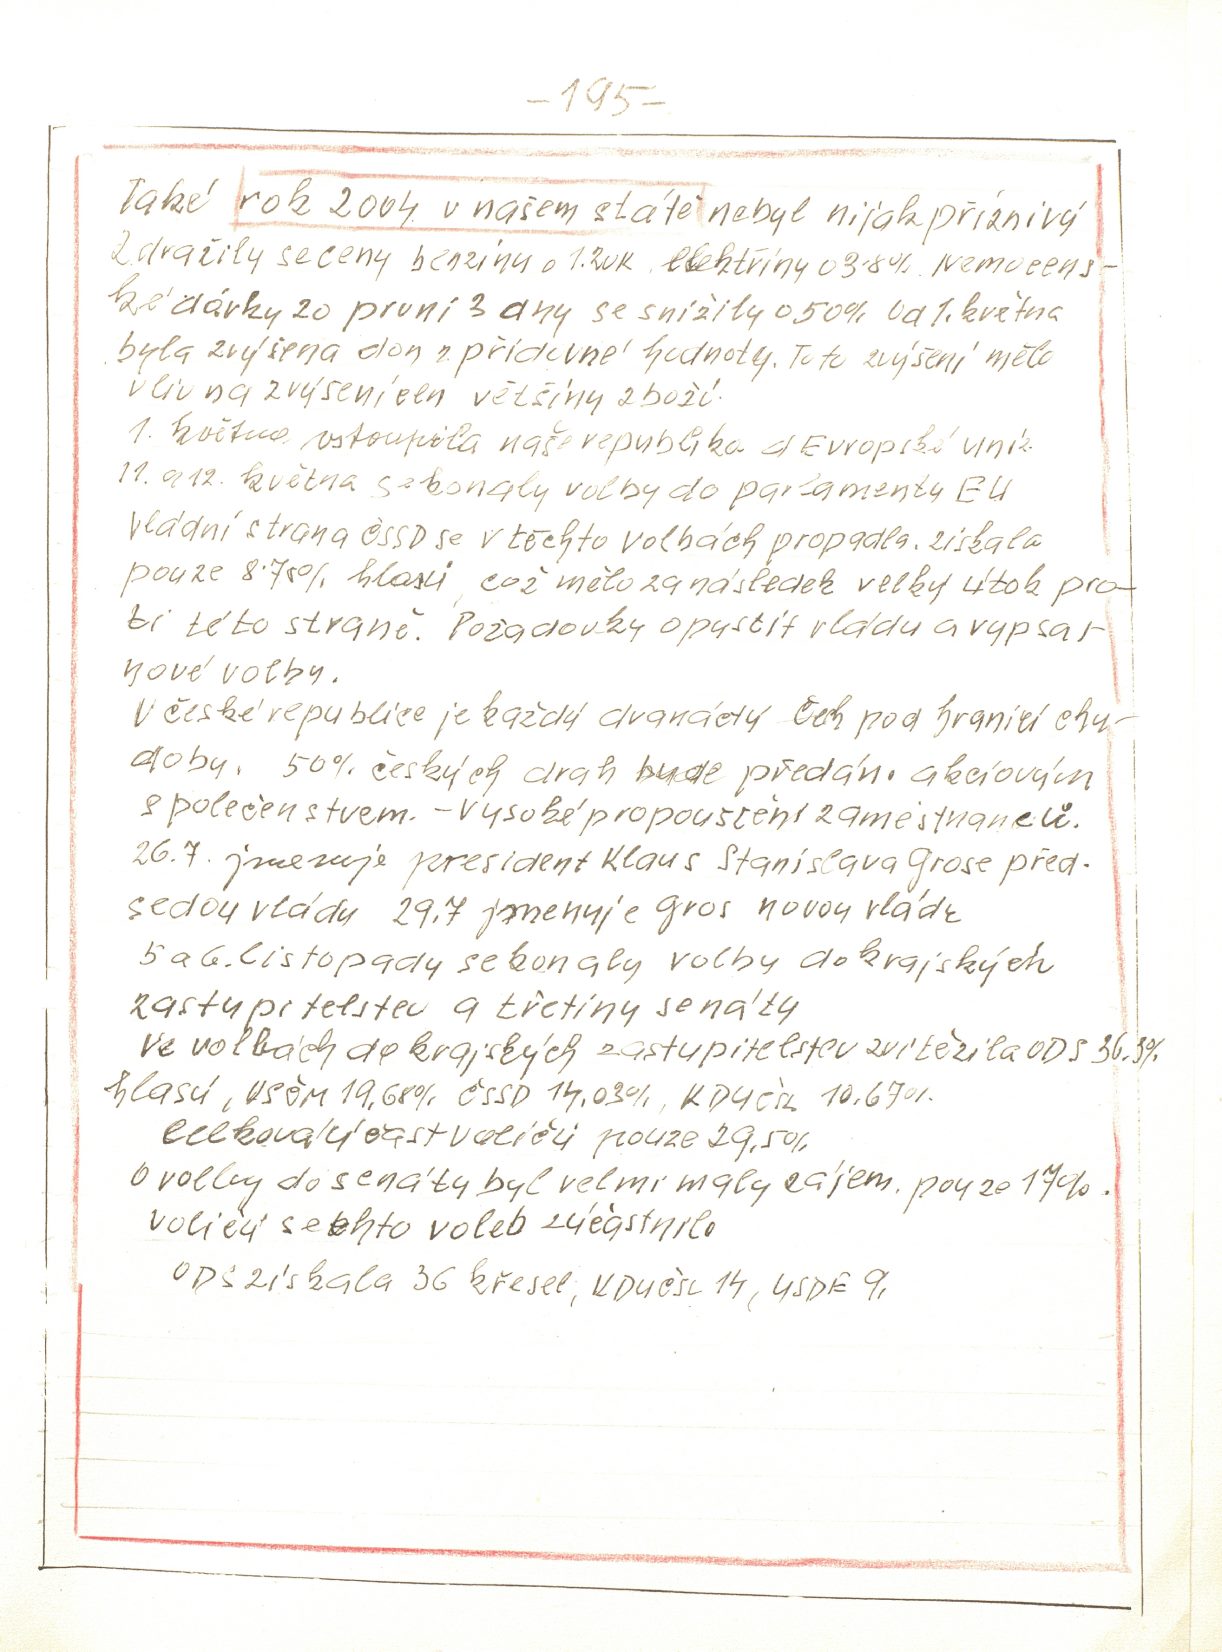 -195-
Také rok 2004 v našem státě nebyl nijak příznivý
Zdražily se ceny benzínu o 1.20K elektřiny o 3.8% Nemocens-
ké dávky zo první 3 dny se snížily o 50% Od 1. května
byla zvýšena daň z přidavné hodnoty. Toto zvýšení mělo
vliv na zvýšení cen většiny zboží.
1. května vstoupila naše republika d Evropské unie
11. a 12. května se konaly volby do parlamentu EU
Vládní strana ČSSD se v těchto volbách propadla. získala
pouze 8.78% hlasů, což mělo za následek velký útok pro-
ti této straně. Požadavky opustit vládu a vypsat
nové volby.
V české republice je každý dvanáctý Čech pod hranicí chu-
doby. 50% českých drah bude předán. akciovým
společenstvem. - Vysoké propouštění zaměstnanců.
26.7. jmenuje president Klaus Stanislava Grose před-
sedou vlády 29.7 jmenuje Gros novou vládu
5 a 6. listopady se konaly volby do krajských
zastupitelstev a třetiny senátu
Ve volbách do krajských zastupitelstev zvítězila ODS 36.3%
hlasů, KSČM 19,68% ČSSD 14,03%, KDUČSL 10.67%.
Celková účast voličů pouze 29,5%
O volby do senátu byl velmi malý zájem. pouze 17%.
voličů se těchto voleb zúčastnilo
ODS získala 36 křesel, KDUČSL 14, USDE 9.